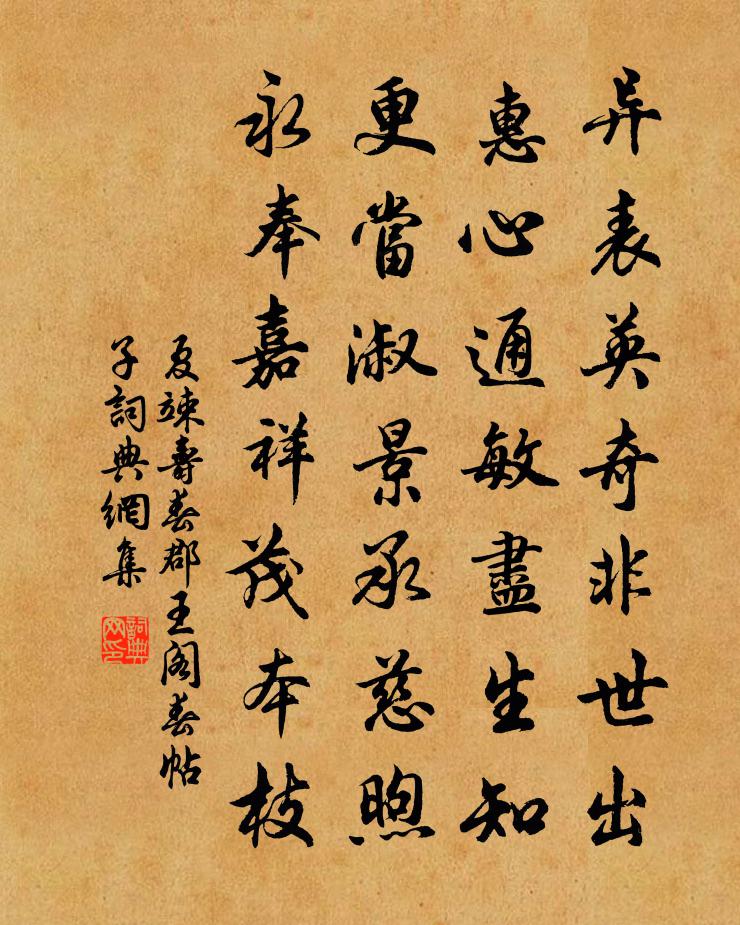 异表英奇非世出
惠心通敏盡生知
更當淑景承慈煦
永奉嘉祥茂本枝
夏竦壽春郡王閣春帖
子詞典網集
詞典网印